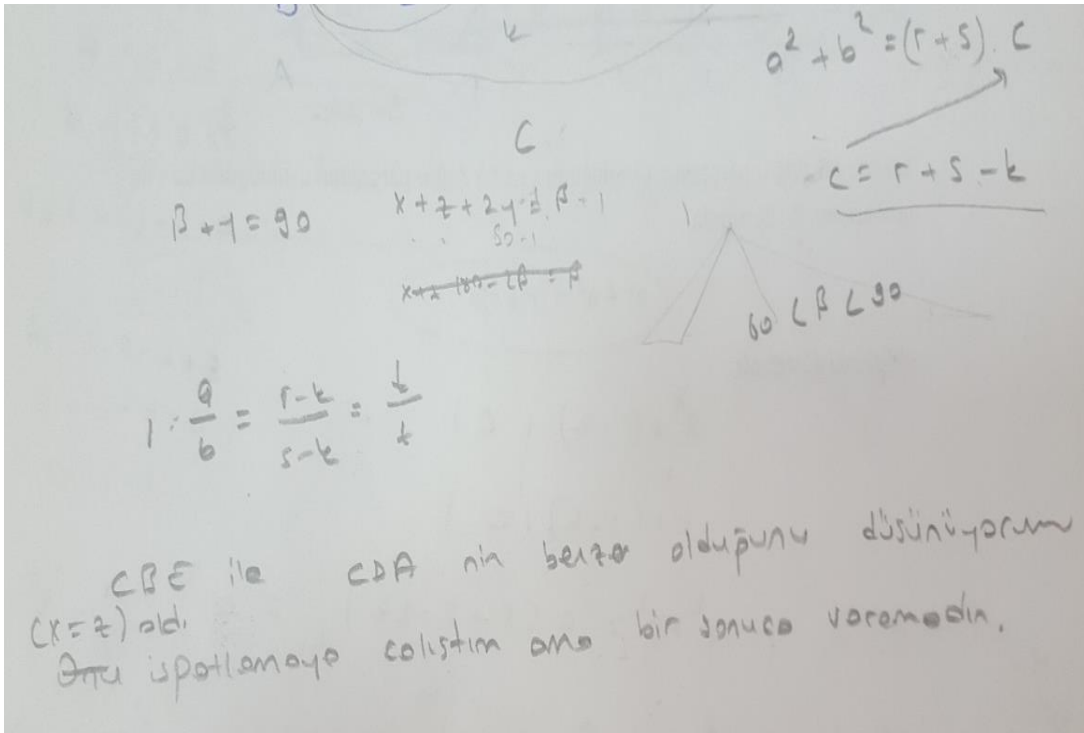 k
A
a² + b² = (r+s). c
C
c = r + s - k
β + y = 90
x + z + 2y = β
60 < β < 90
1: a/b = r-k/s-k =
CBE ile CDA nın benzer olduğunu düşünüyorum
(x=z) old.
ispatlamaya çalıştım ama bir sonuca varamadım.